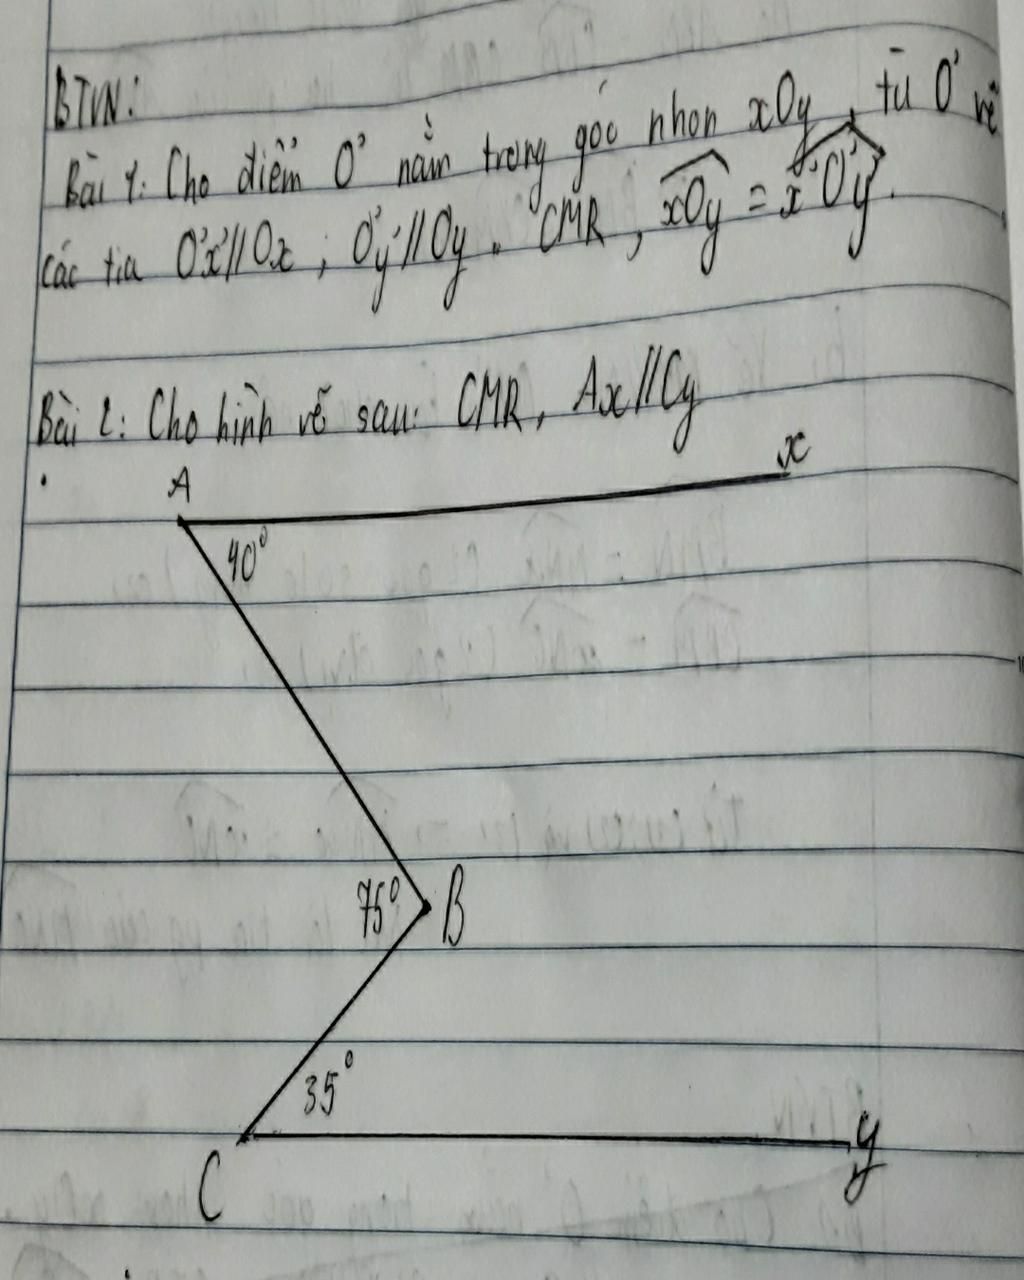 BTVN:
Bài 1: Cho điểm O' nằm trong góc nhọn xOy, từ O' vẽ
các tia O'x'//Ox; O'y'//Oy. CMR, xOy = x'O'y'.
Bài 2: Cho hình vẽ sau: CMR, Ax//Cy
A x
40°
75° B
35°
C y